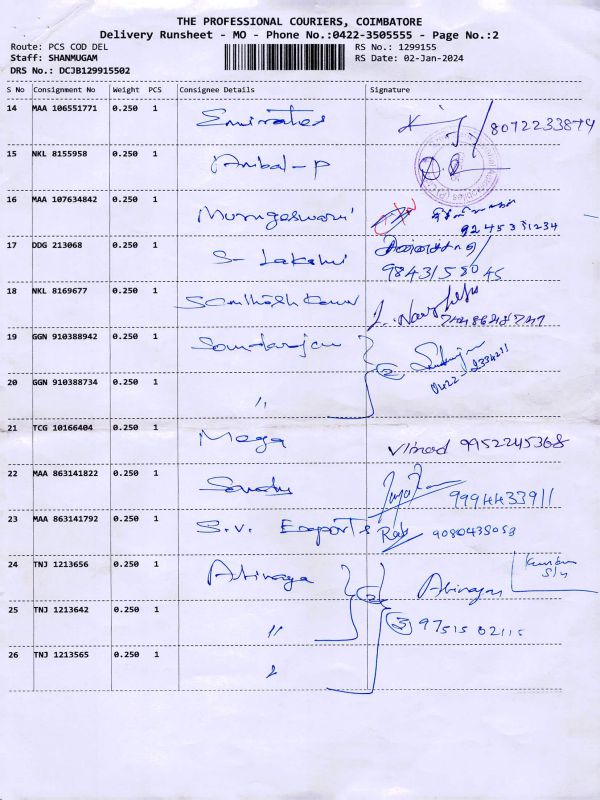 THE PROFESSIONAL COURIERS, COIMBATORE
Delivery Runsheet - MO - Phone No.:0422-3505555 - Page No.:2
Route: PCS COD DEL RS No.: 1299155
Staff: SHANMUGAM RS Date: 02-Jan-2024
DRS No.: DCJB129915502
S No Consignment No Weight PCS Consignee Details Signature
14 MAA 106551771 0.250 1 Emirates 8072233874
15 NKL 8155958 0.250 1
16 MAA 107634842 0.250 1 Murugeswari
17 DDG 213068 0.250 1 S- Lakshmi
9843155045
18 NKL 8169677 0.250 1 Santhosh Kumar
19 GGN 910388942 0.250 1 Soundarajan
0422-2334211
20 GGN 910388734 0.250 1 "
21 TCG 10166404 0.250 1 Mega Vinod 9952245368
22 MAA 863141822 0.250 1 9994433911
23 MAA 863141792 0.250 1 S.V. Exports 9080438053
24 TNJ 1213656 0.250 1 Abinaya 2 Abinaya
25 TNJ 1213642 0.250 1 " 3 9751502115
26 TNJ 1213565 0.250 1 "